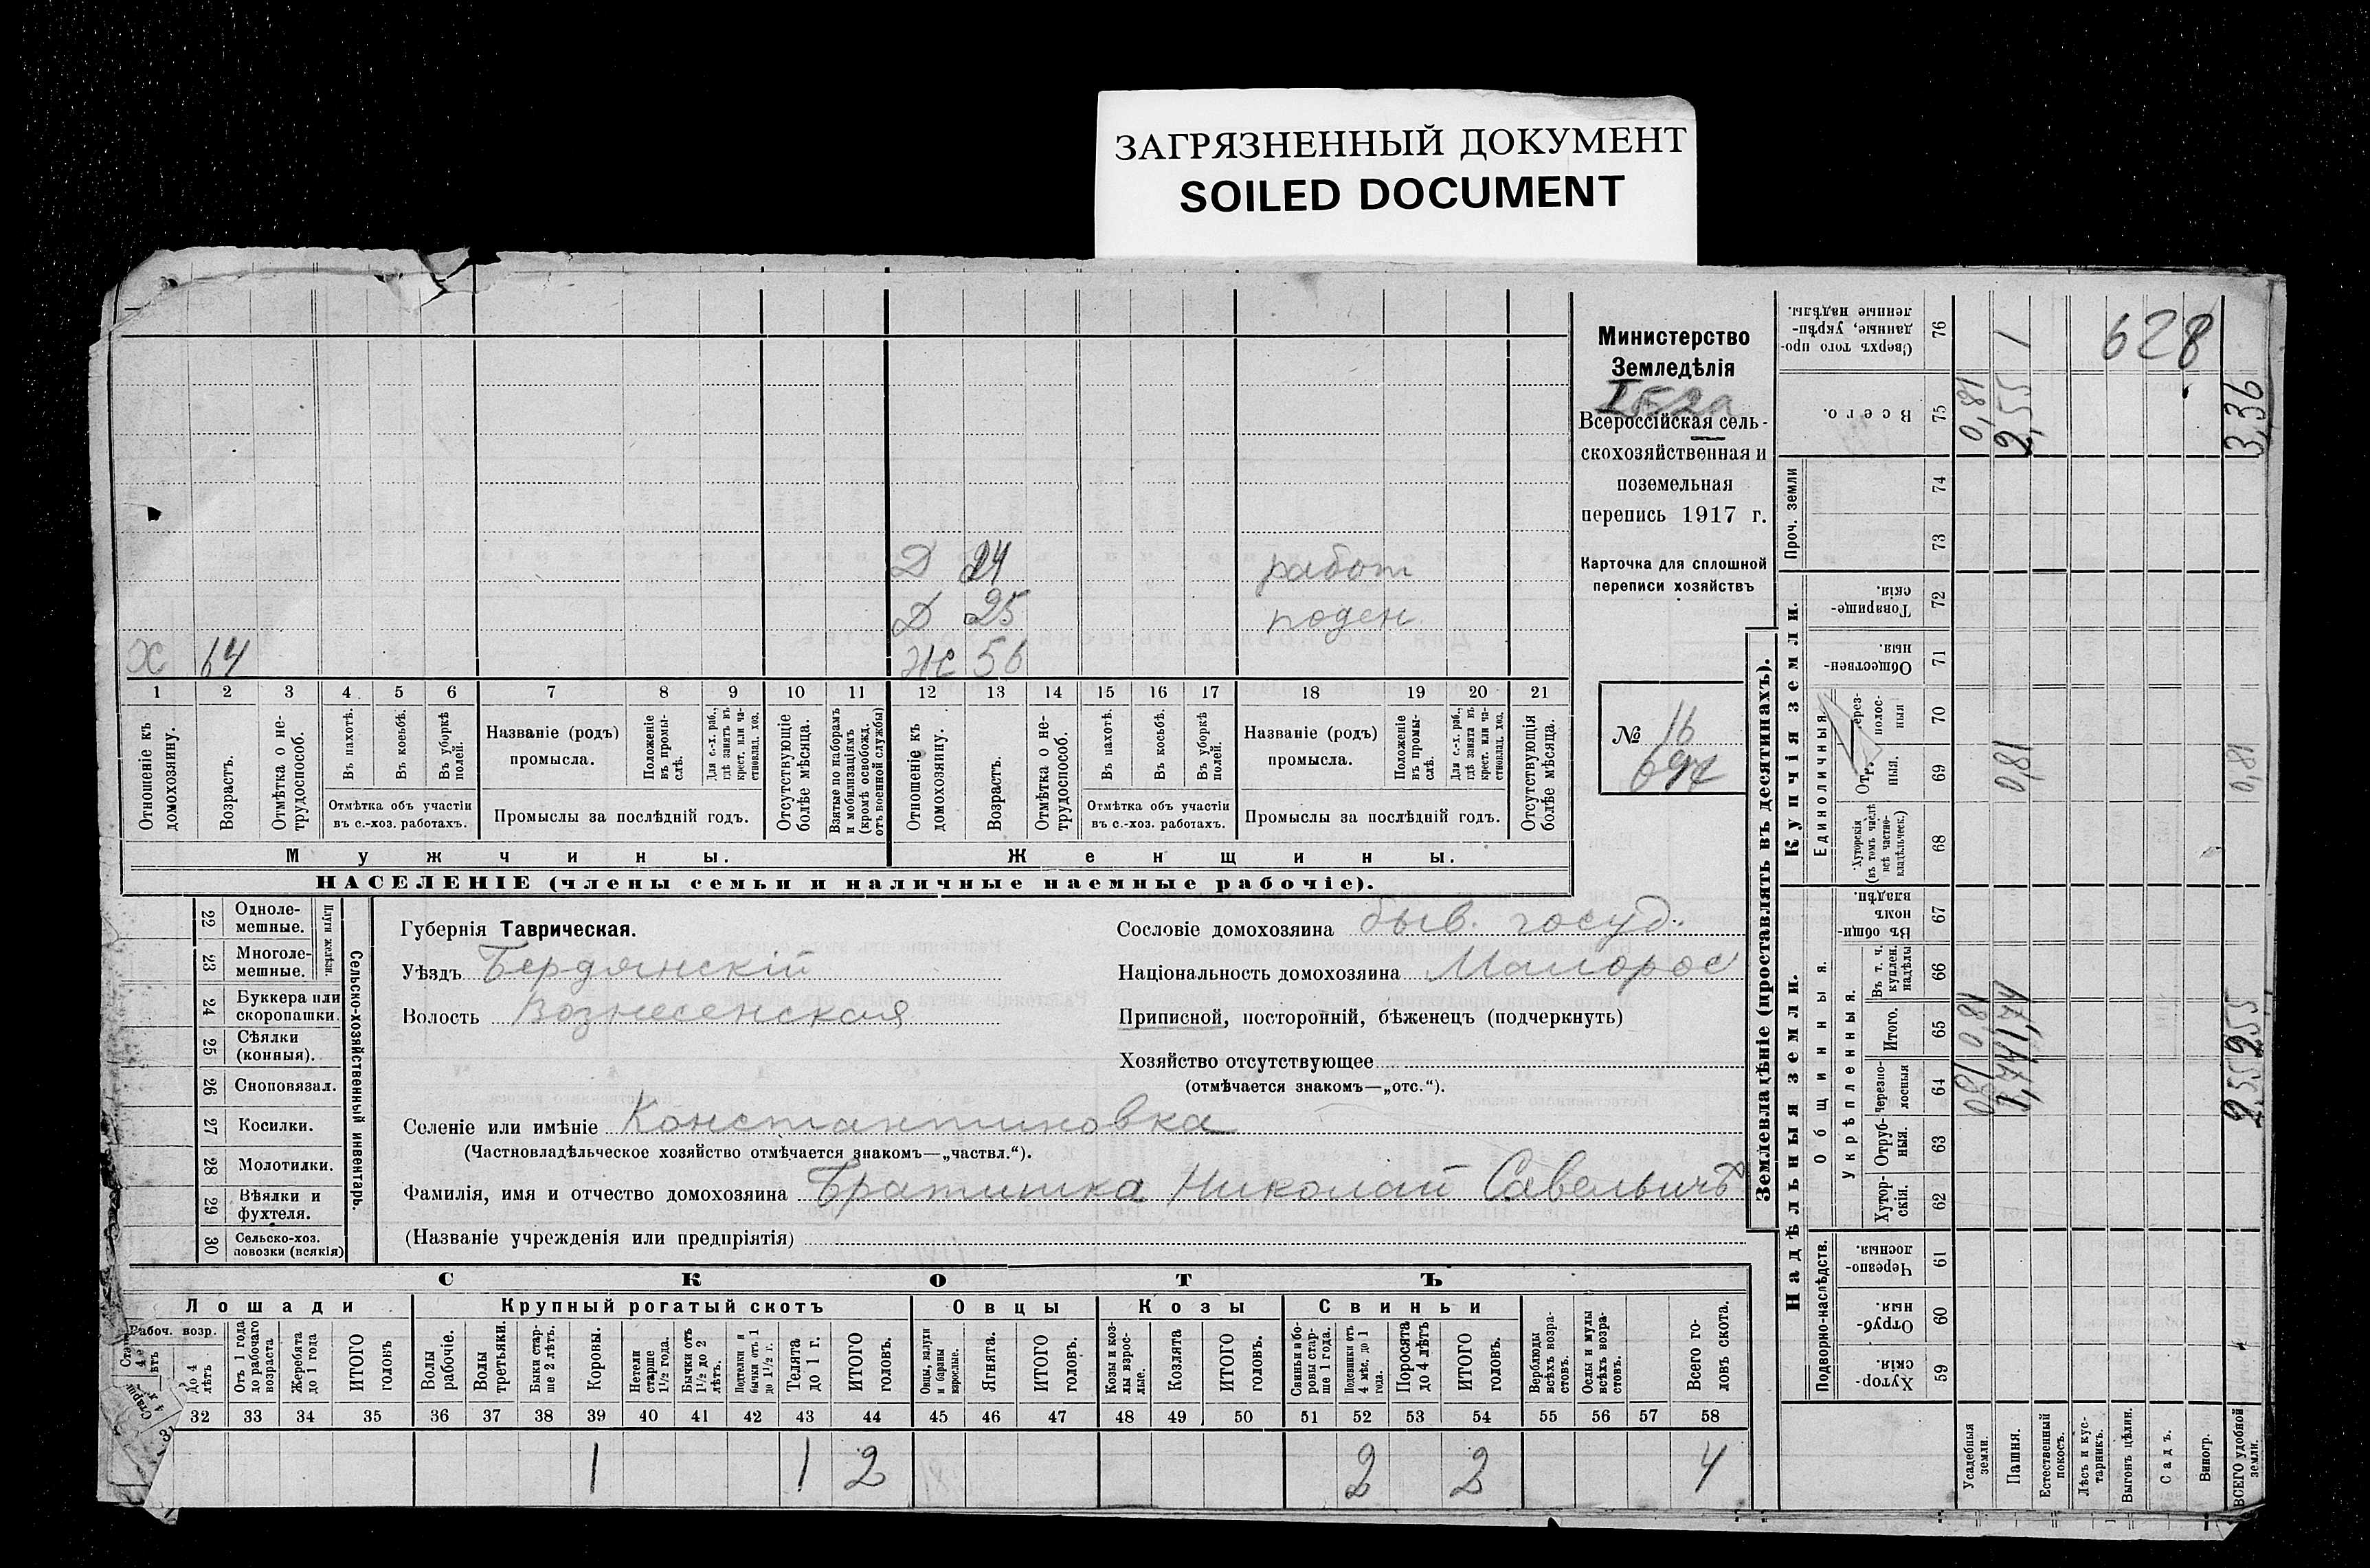 ЗАГРЯЗНЕННЫЙ ДОКУМЕНТ
SOILED DOCUMENT
Министерство
Земледѣлія
Всероссійская сель-
скохозяйственная и
поземельная
перепись 1917 г.
Карточка для сплошной
переписи хозяйствъ
№ 16
Д 24 работ
Д 25 поден
Х 64 Ж 56
1 2 3 4 5 6 7 8 9 10 11 12 13 14 15 16 17 18 19 20 21
Отношеніе къ домохозяину.
Возрастъ.
Отмѣтка о не-трудоспособ.
Въ пахотѣ.
Въ косьбѣ.
Въ уборкѣ полей.
Отмѣтка объ участіи
въ с.-хоз. работахъ.
Названіе (родъ)
промысла.
Положеніе въ промы-слѣ.
Для с.-х. раб., гдѣ занятъ въ крест. или ча-стновлад. хоз.
Промыслы за послѣдній годъ.
Отсутствующіе болѣе мѣсяца.
Взятые по наборамъ и мобилизаціямъ (кромѣ освобожд. отъ военной службы)
Отношеніе къ домохозяину.
Возрастъ.
Отмѣтка о не-трудоспособ.
Въ пахотѣ.
Въ косьбѣ.
Въ уборкѣ полей.
Отмѣтка объ участіи
въ с.-хоз. работахъ.
Названіе (родъ)
промысла.
Положеніе въ промы-слѣ.
Для с.-х. раб., гдѣ занята въ крест. или ча-стновлад. хоз.
Промыслы за послѣдній годъ.
Отсутствующія болѣе мѣсяца.
Мужчины. Женщины.
НАСЕЛЕНІЕ (члены семьи и наличные наемные рабочіе).
Сельско-хозяйственный инвентарь.
22 Одноле-мешные.
23 Многоле-мешные.
24 Буккера или скоропашки.
25 Сѣялки (конныя).
26 Сноповязал.
27 Косилки.
28 Молотилки.
29 Вѣялки и фухтеля.
30 Сельско-хоз. повозки (всякія)
Губернія Таврическая.
Уѣздъ Бердянскій
Волость Вознесенская
Сословіе домохозяина быв. госуд.
Національность домохозяина Малорос
Приписной, посторонній, бѣженецъ (подчеркнуть)
Хозяйство отсутствующее
(отмѣчается знакомъ—„отс.“).
Селеніе или имѣніе Константиновка
(Частновладѣльческое хозяйство отмѣчается знакомъ—„частвл.“).
Фамилія, имя и отчество домохозяина Братишка Николай Савельичъ
(Названіе учрежденія или предпріятія)
СКОТЪ
Лошади Крупный рогатый скотъ Овцы Козы Свиньи
Рабоч. возр.
До 4 лѣтъ
Отъ 1 года до рабочаго возраста
Жеребята до 1 года
ИТОГО головъ
Волы рабочіе.
Волы третьяки.
Быки стар-ше 2 лѣтъ.
Коровы.
Нетели старше 1½ года.
Бычки отъ 1½ до 2 лѣтъ.
Подтелки и бычки отъ 1 до 1½ г.
Телята до 1 г.
ИТОГО головъ.
Овцы, валухи и бараны взрослые.
Ягнята.
ИТОГО головъ.
Козы и коз-лы взрос-лые.
Козлята
ИТОГО головъ.
Свиньи и бо-ровы стар-ше 1 года.
Подсвинки отъ 4 мѣс. до 1 года.
Поросята до 4 лѣтъ
ИТОГО головъ.
Верблюды всѣхъ возра-стовъ.
Ослы и мулы всѣхъ возра-стовъ.
Всего го-ловъ скота.
32 33 34 35 36 37 38 39 40 41 42 43 44 45 46 47 48 49 50 51 52 53 54 55 56 57 58
1 1 2 2 2 4
Землевладѣніе (проставлять въ десятинахъ).
Надѣльныя земли. Купчія земли. Проч. земли
Подворно-наслѣдств.
Общинныя.
Укрѣпленныя.
Единоличныя.
Хутор-скія. 59
Отруб-ныя 60
Черезпо-лосныя 61
Хутор-скія. 62
Отруб-ныя. 63
Черезпо-лосныя 64
Итого. 65
Въ т. ч. куплен. надѣлы 66
Въ общин-номъ владѣн. 67
Хуторскія (въ томъ числѣ всѣ частно-владѣльческ.) 68
69
70
Обществен-ныя. 71
Товарище-скія. 72
73
74
Всего. 75
Сверхъ того про-данные, укрѣп-ленные надѣлы. 76
Усадебныя земли. 0,81 0,81 0,81
Пашня. 1,74 1,74 0,81 2,55 1
Естественный покосъ.
Лѣсъ и кус-тарникъ.
Выгонъ цѣлин.
Садъ.
Виногр.
628
ВСЕГО удобной земли. 2,55 2,55 0,81 3,36